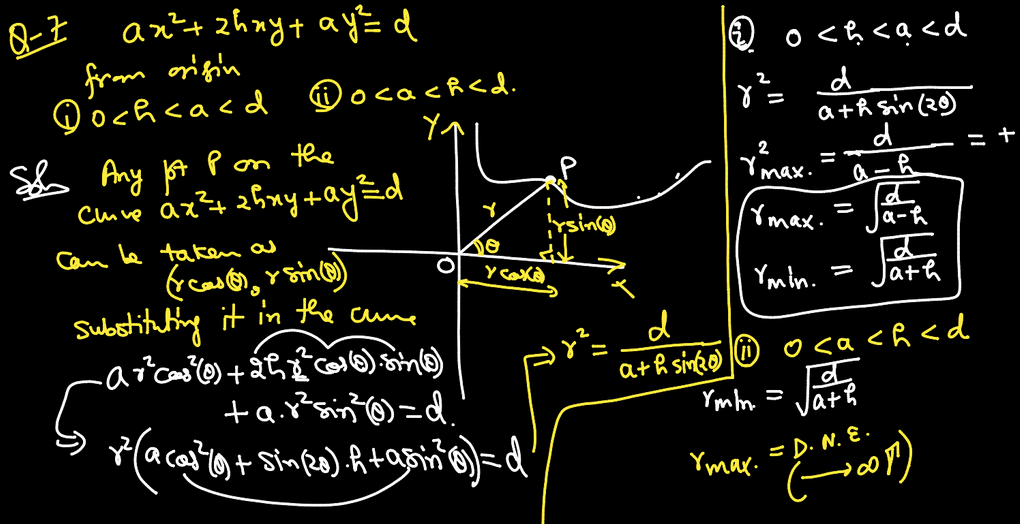 Q-7 ax² + 2hxy + ay² = d
from origin
(i) 0 < h < a < d (ii) 0 < a < h < d.
Soln Any pt P on the
curve ax² + 2hxy + ay² = d
can be taken as
(r cos(θ), r sin(θ))
substituting it in the curve
ar²cos²(θ) + 2h r² cos(θ) sin(θ)
+ a·r² sin²(θ) = d.
r²(a cos²(θ) + sin(2θ)·h + a sin²(θ)) = d
Y
P
r
r sin(θ)
θ
O
r cos(θ)
X
r² = d / (a + h sin(2θ))
(i) 0 < h < a < d
r² = d / (a + h sin(2θ))
r²max. = d / (a - h) = +
rmax. = √(d / (a - h))
rmin. = √(d / (a + h))
(ii) 0 < a < h < d
rmin. = √(d / (a + h))
rmax. = D.N.E.
(⟶ ∞ ↑)